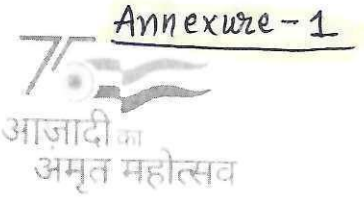 Annexure-1
75
आज़ादी का
अमृत महोत्सव